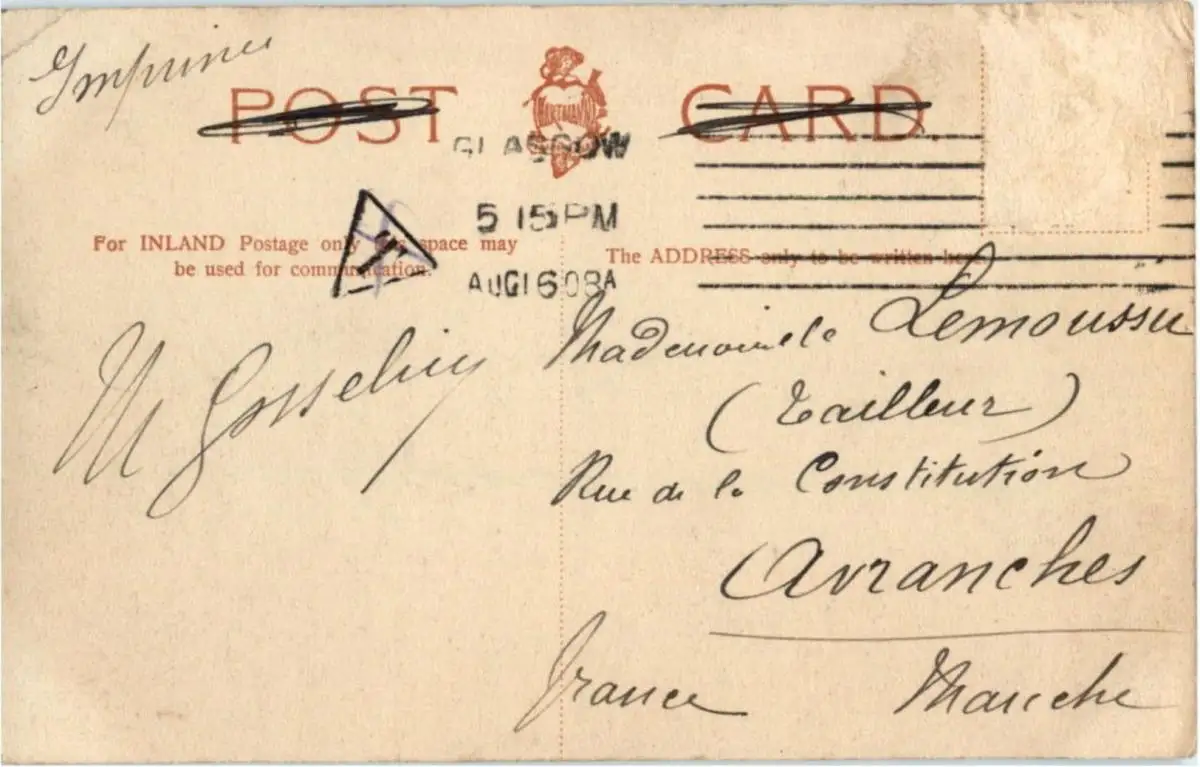 Imprimé
POST CARD
HARTMANN
GLASGOW
5 15 PM
AUG 16 08 A
T
For INLAND Postage only this space may
be used for communication.
The ADDRESS only to be written here
M Gosselin
Mademoiselle Lemoussu
(Tailleur)
Rue de la Constitution
Avranches
France Manche